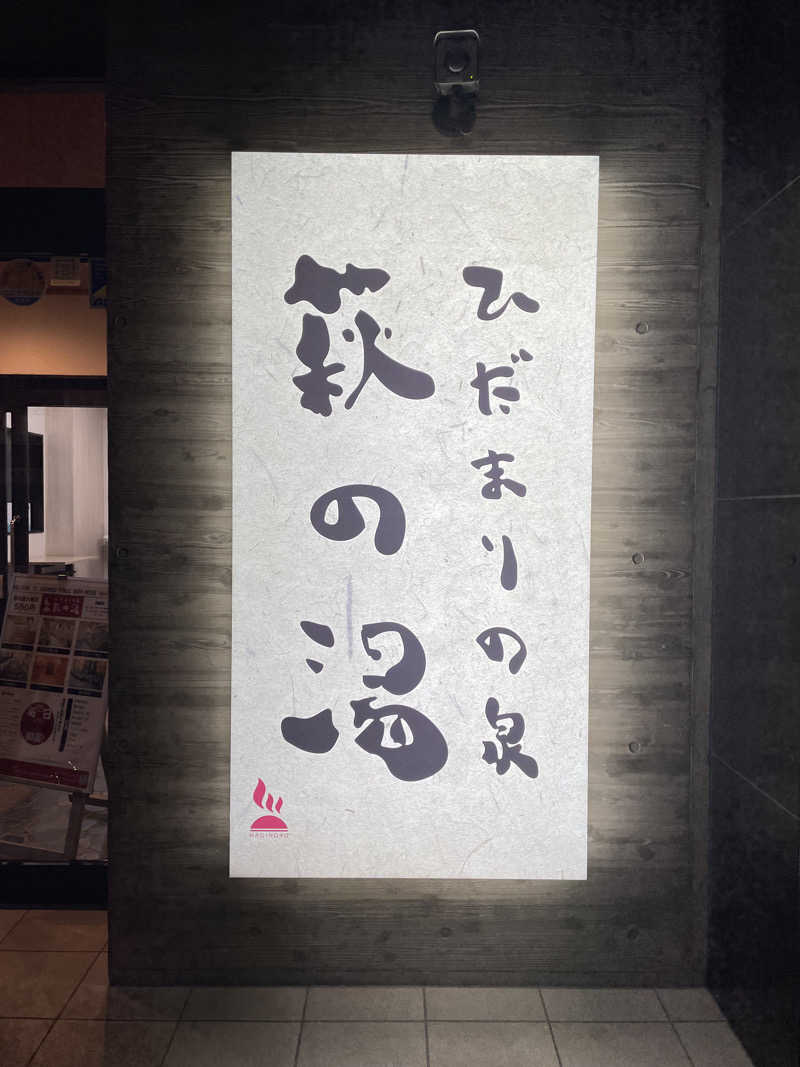 ひだまりの泉
萩の湯
HAGINOYU
550円